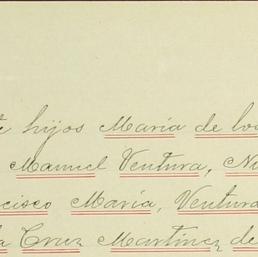 hijos María de los
Manuel Ventura, Ni
cisco María, Ventura
la Cruz Martínez de